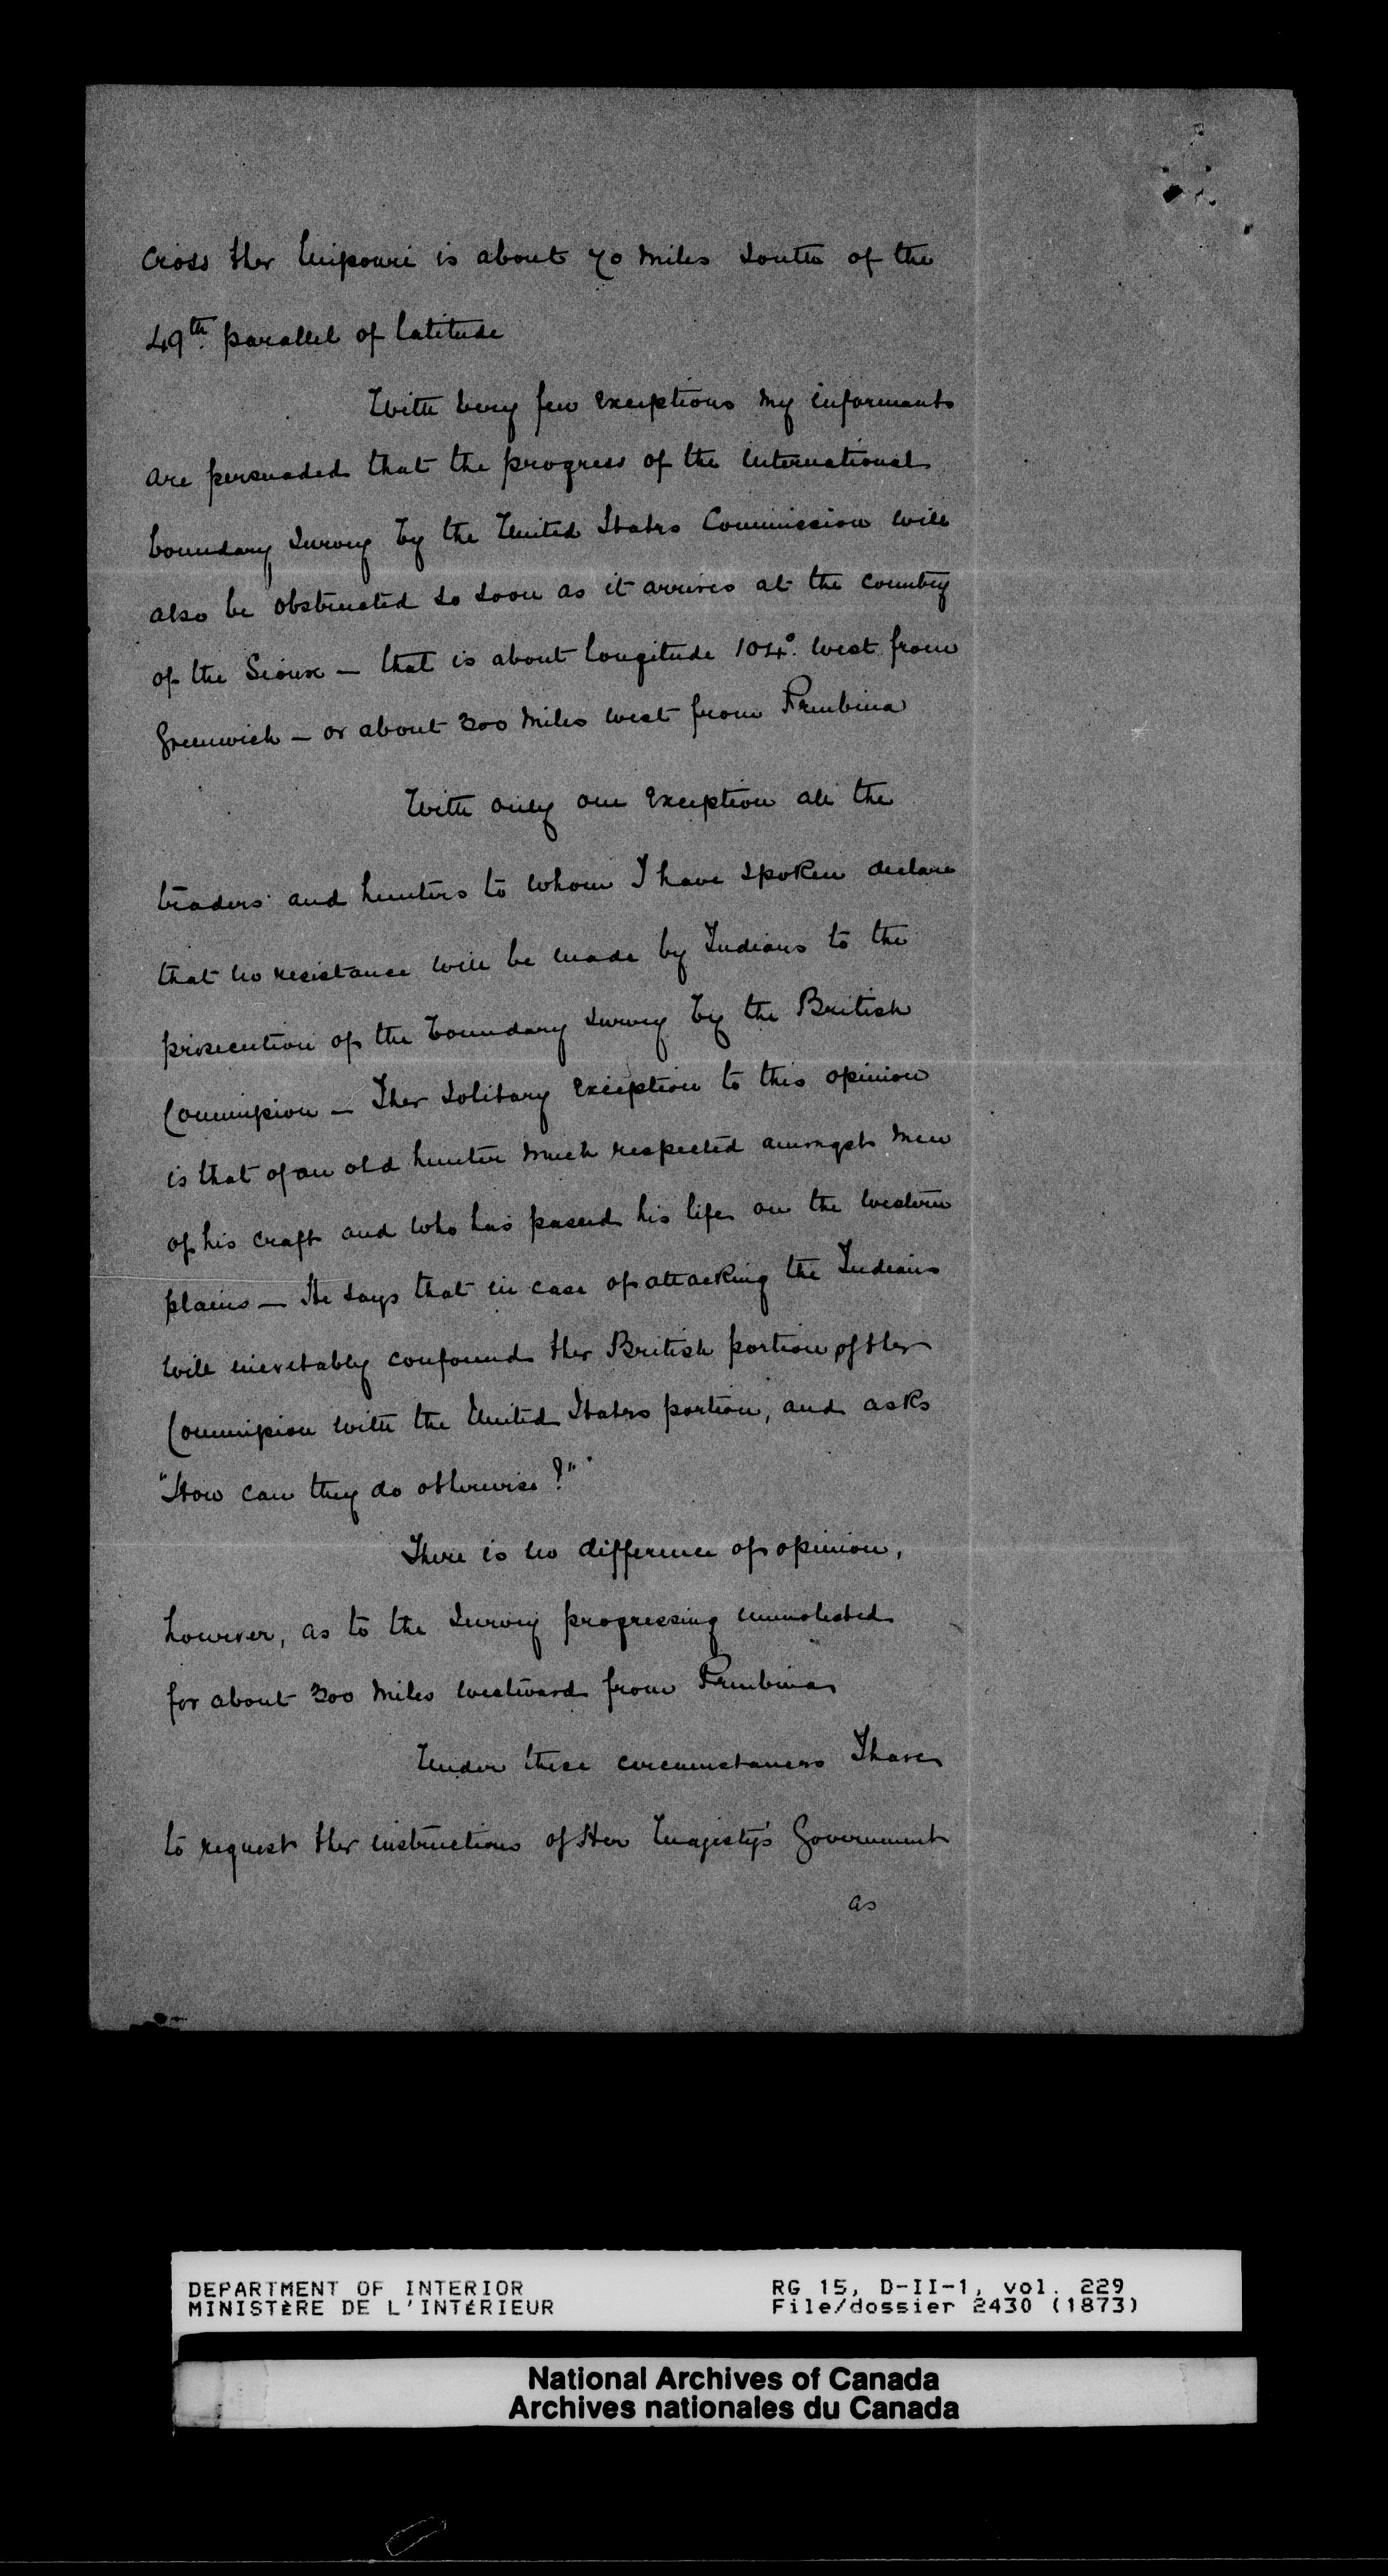 cross the Missouri is about 70 miles south of the
49th parallel of latitude
With very few exceptions my informants
are persuaded that the progress of the International
boundary survey by the United States Commission will
also be obstructed so soon as it arrives at the country
of the Sioux — that is about longitude 104° west from
Greenwich — or about 300 miles west from Pembina
With only one exception all the
traders and hunters to whom I have spoken declare
that no resistance will be made by Indians to the
prosecution of the boundary survey by the British
Commission — The solitary exception to this opinion
is that of an old hunter much respected amongst men
of his craft and who has passed his life on the western
plains — He says that in case of attacking the Indians
will inevitably confound the British portion of the
Commission with the United States portion, and asks
"How can they do otherwise?"
There is no difference of opinion,
however, as to the survey progressing unmolested
for about 300 miles westward from Pembina
Under these circumstances I have
to request the instructions of Her Majesty's Government
as
DEPARTMENT OF INTERIOR
MINISTÈRE DE L'INTÉRIEUR
RG 15, D-II-1, vol. 229
File/dossier 2430 (1873)
National Archives of Canada
Archives nationales du Canada